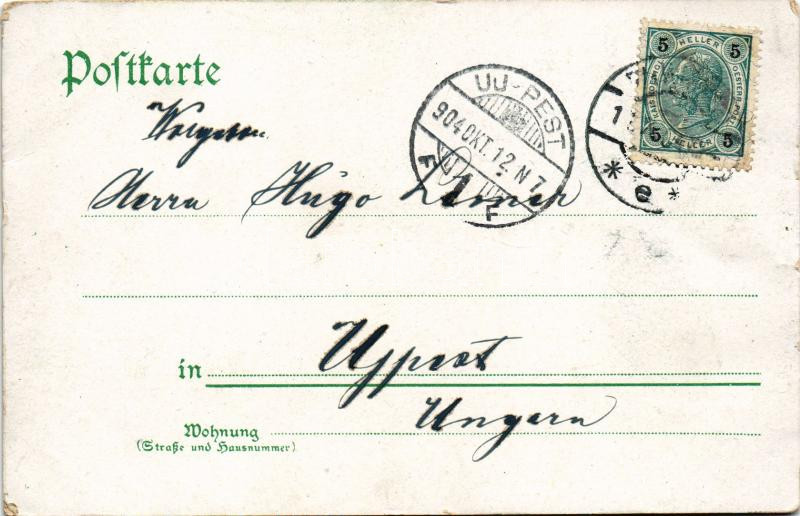 Postkarte
5 HELLER 5
KAIS. KOENIGL. OESTERR. POST
5 HELLER 5
UJ-PEST
904 OKT. 12 N 7
F F
1
* e *
Herrn Hugo
in Ujpest
Ungarn
Wohnung
(Straße und Hausnummer)